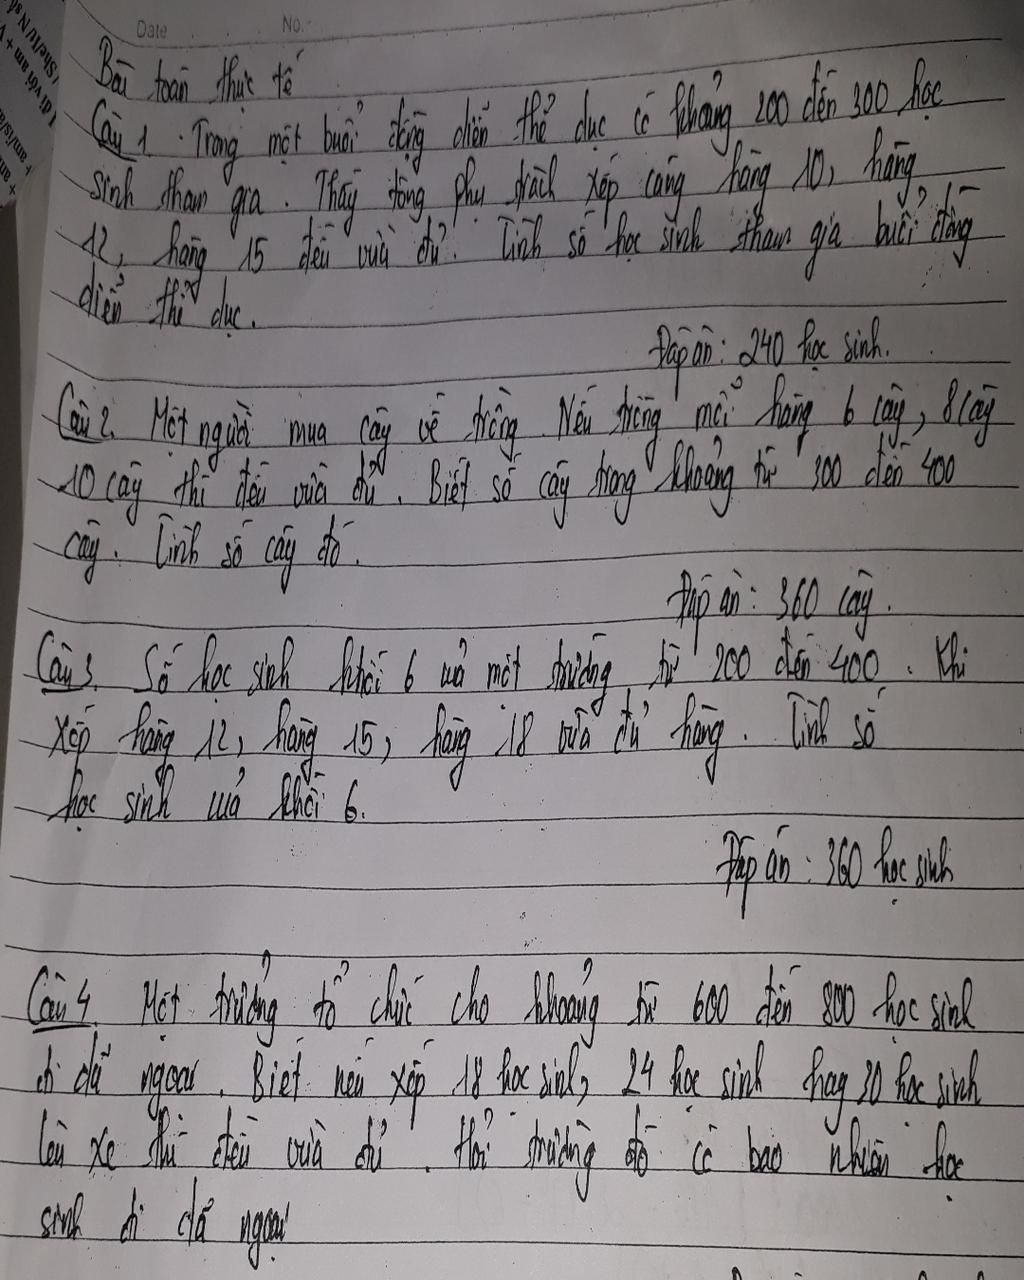 Date No.
Bài toán thực tế
Câu 1. Trong một buổi đồng diễn thể dục có khoảng 200 đến 300 học
sinh tham gia. Thầy tổng phụ trách xếp càng hàng 10, hàng
12, hàng 15 đều vừa đủ. Tính số học sinh tham gia buổi đồng
diễn thể dục.
Đáp án: 240 học sinh.
Câu 2. Một người mua cây về trồng. Nếu trồng mỗi hàng 6 cây, 8 cây
10 cây thì đều vừa đủ. Biết số cây trong khoảng từ 300 đến 400
cây. Tính số cây đó.
Đáp án: 360 cây.
Câu 3. Số học sinh khối 6 của một trường từ 200 đến 400. Khi
xếp hàng 12, hàng 15, hàng 18 vừa đủ hàng. Tính số
học sinh của khối 6.
Đáp án: 360 học sinh
Câu 4. Một trường tổ chức cho khoảng từ 600 đến 800 học sinh
đi dã ngoại. Biết nếu xếp 18 học sinh, 24 học sinh hay 30 học sinh
lên xe thì đều vừa đủ. Hỏi trường đó có bao nhiêu học
sinh đi dã ngoại